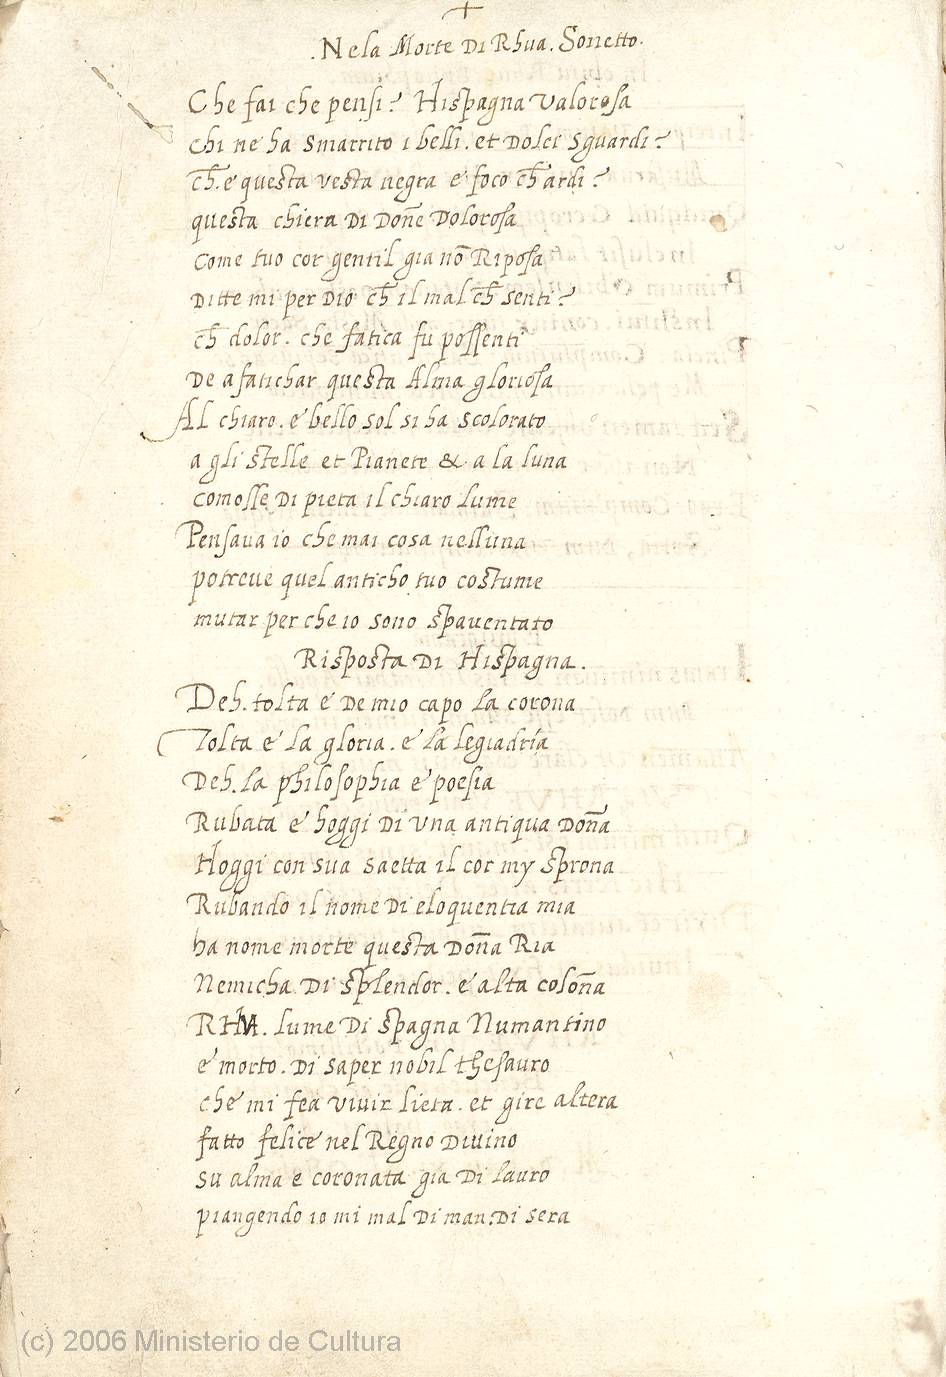 +
.Nela Morte Di Rhua. Sonetto.
Che fai che pensi? Hispagna valorosa
chi ne ha smarrito i belli. et dolci sguardi?
ch̄. e questa vesta negra e foco ch̄ ardi?
questa chiera di doñe dolorosa
come tuo cor gentil gia nō Riposa
ditte mi per dio ch̄ il mal ch̄ senti?
ch̄ dolor. che fatica fu possenti
de afatichar questa Alma gloriosa
Al chiaro. e bello sol si ha scolorato
a gli stelle et Pianete & a la luna
comosse di pieta il chiaro lume
Pensaua io che mai cosa nessuna
potreue quel anticho tuo costume
mutar per che io sono spauentato
Risposta di Hispagna.
Deh. tolta e de mio capo la corona
Tolta e la gloria. e la legiadria
Deh. la philosophia e poesia
Rubata e hoggi di vna antiqua doña
Hoggi con sua saetta il cor my sprona
Rubando il nome di eloquentia mia
ha nome morte questa doña Ria
Nemicha di splendor. e alta coloña
. lume di spagna Numantino
e morto. di saper nobil thesauro
che mi fea viuir lieta. et gire altera
fatto felice nel Regno diuino
su alma e coronata gia di lauro
piangendo io mi mal di man. di sera
(c) 2006 Ministerio de Cultura